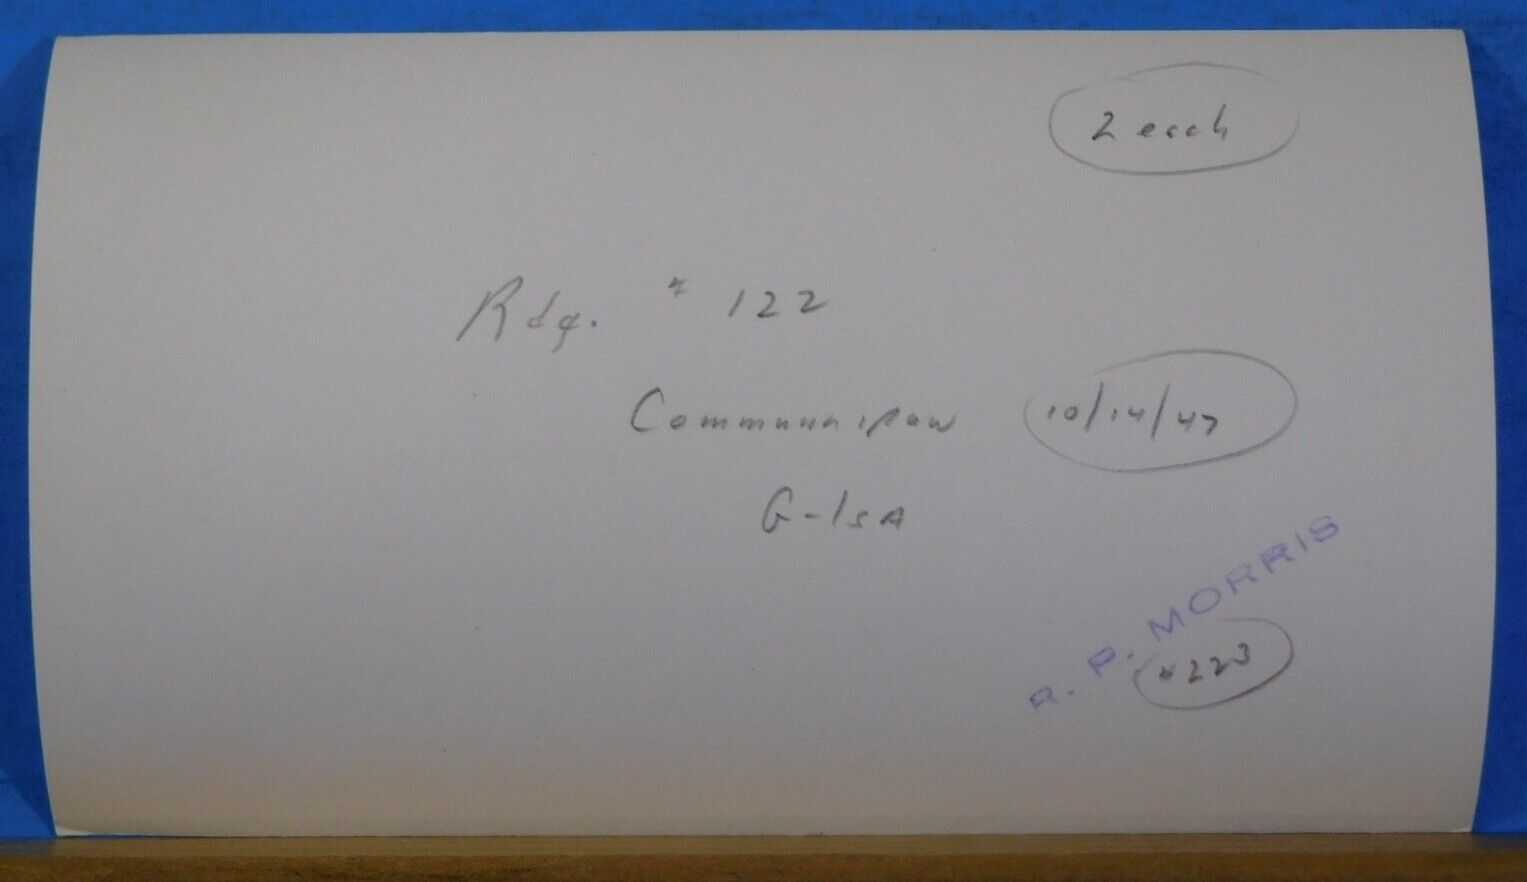 2 each
Rdg. # 122
Communipaw 10/14/47
G-1sA
R. P. MORRIS
#223